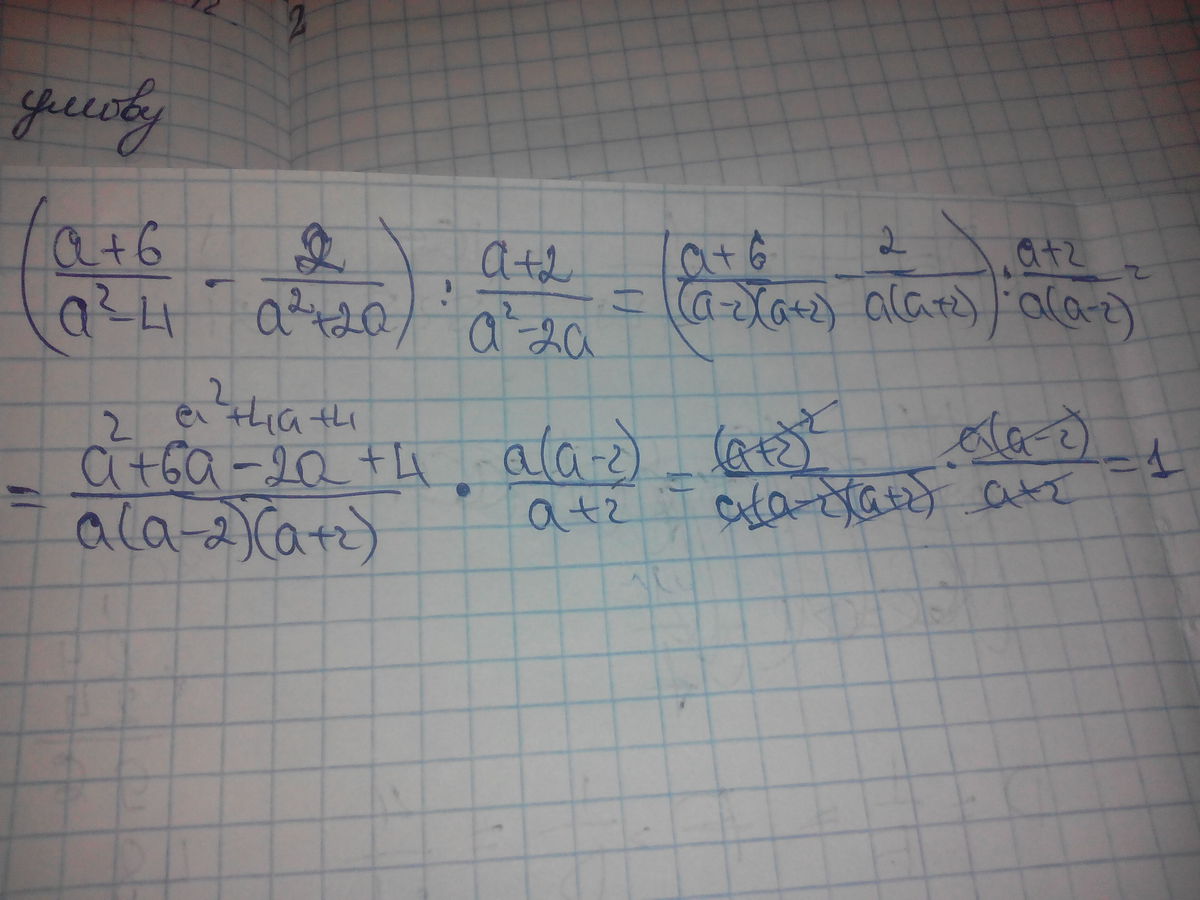 умову
(a+6/a²-4 - 2/a²+2a) : a+2/a²-2a = (a+6/(a-2)(a+2) - 2/a(a+2)) : a+2/a(a-2) =
a²+4a+4
= a²+6a-2a+4/a(a-2)(a+2) · a(a-2)/a+2 = (a+2)²/a(a-2)(a+2) · a(a-2)/a+2 = 1